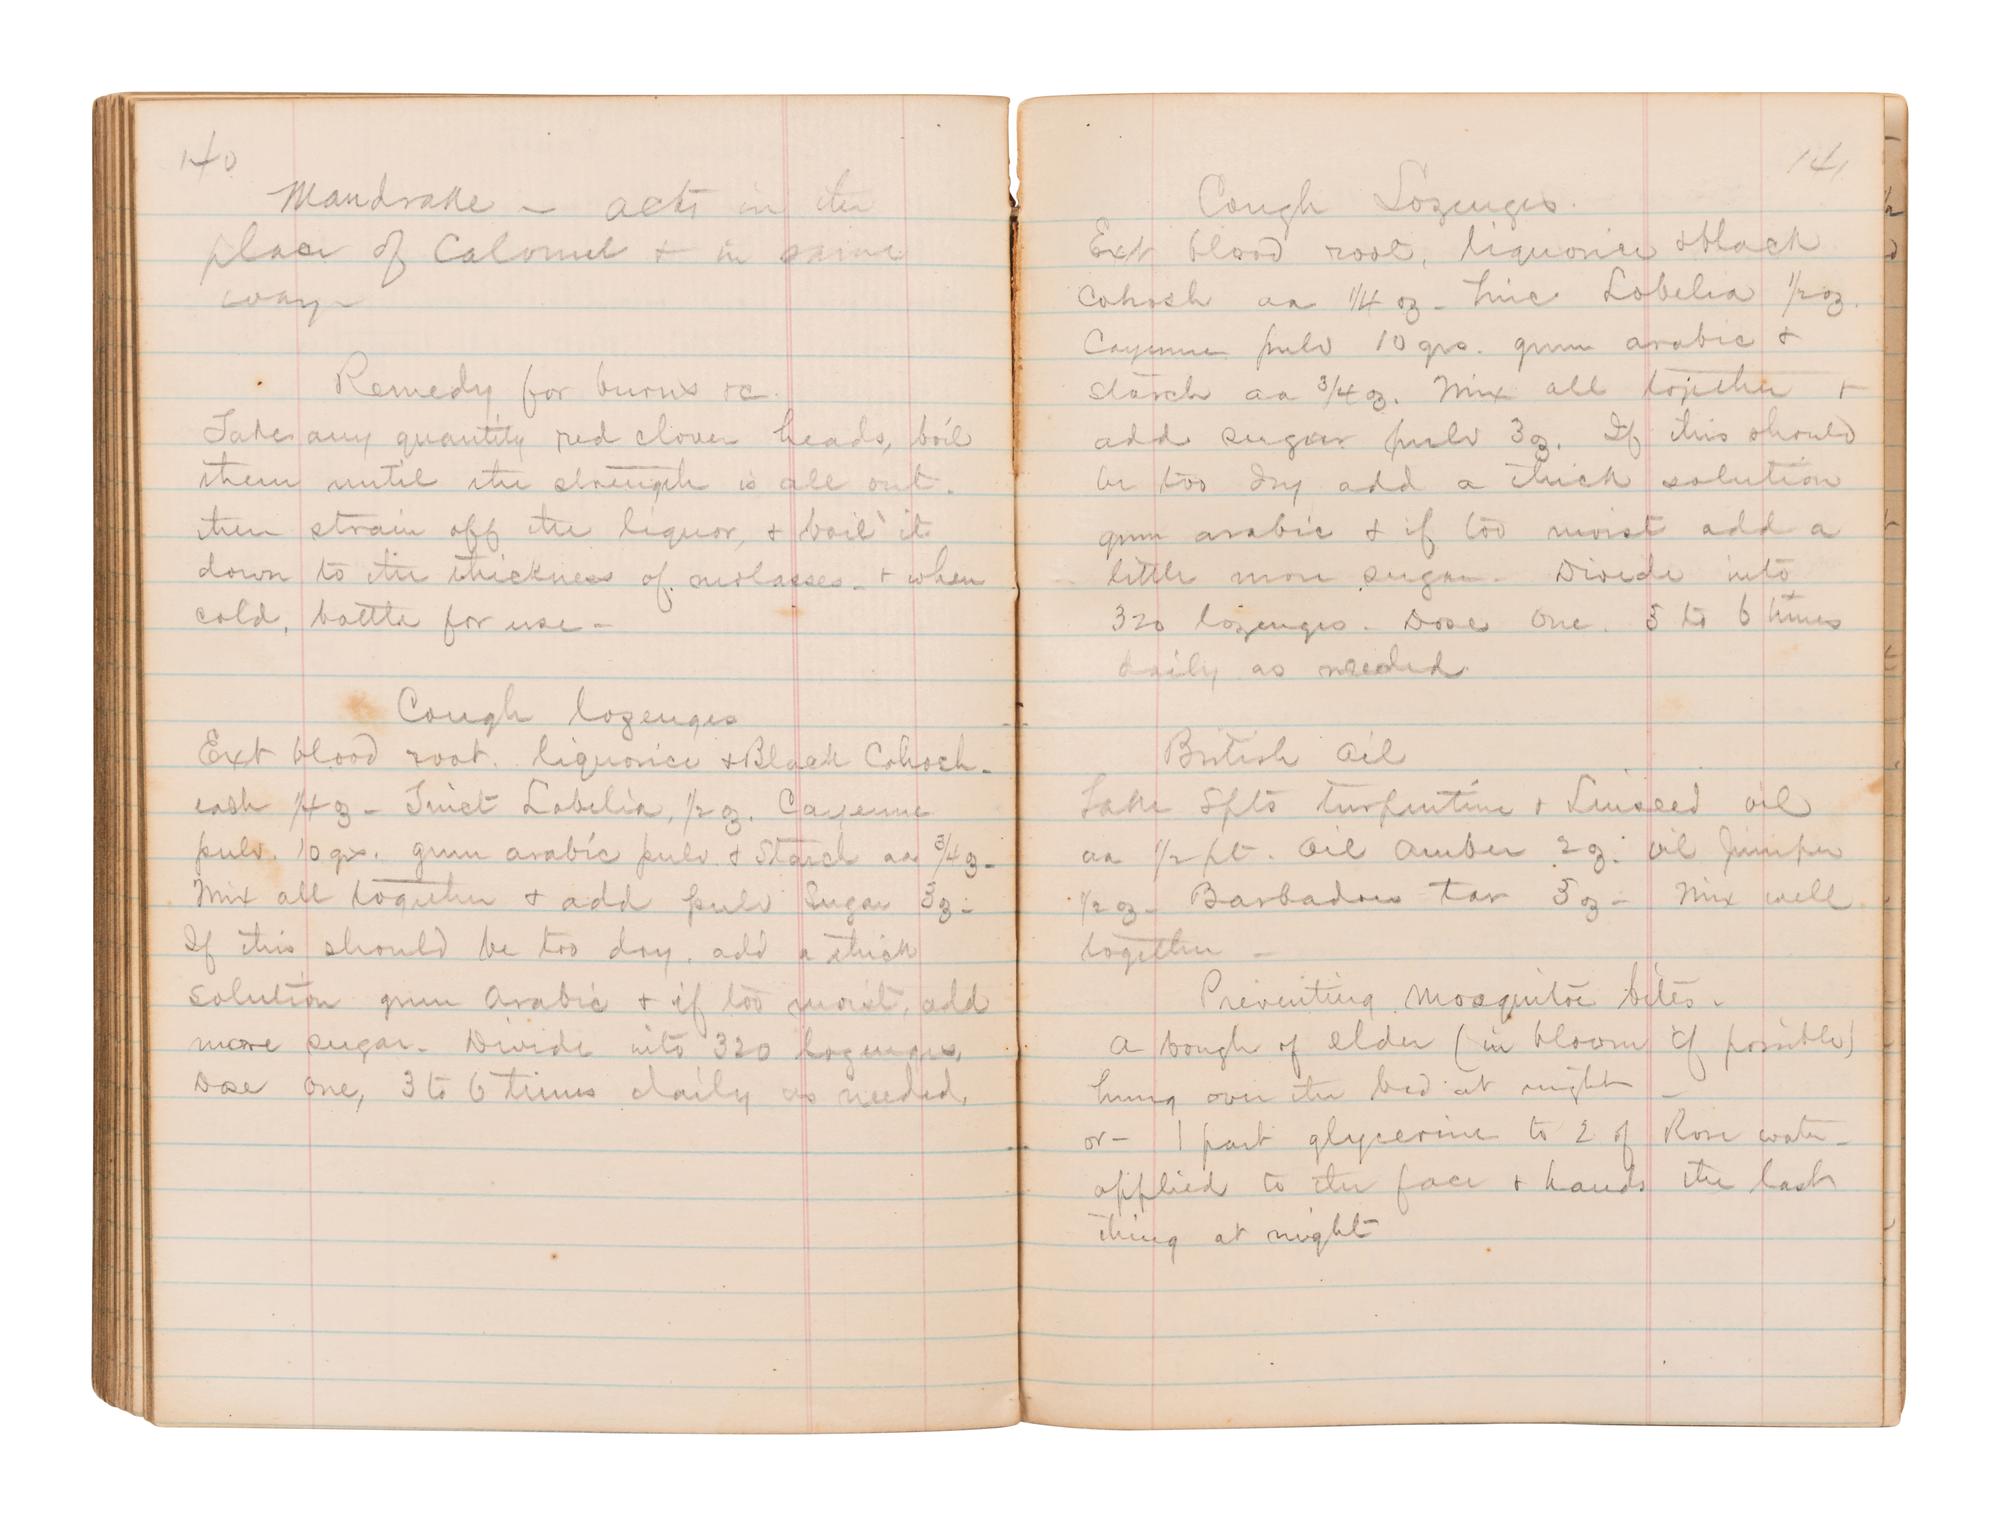 140
Mandrake - acts in the
place of Calomel & in same
way -
Remedy for burns &c.
Take any quantity red clover heads, boil
them until the strength is all out.
then strain off the liquor, & boil it
down to the thickness of molasses - & when
cold, bottle for use -
Cough lozenges
Ext blood root. liquorice & Black Cohosh -
each 1/4 oz - Tinct Lobelia, 1/2 oz. Cayenne
pulv. 10 grs. gum arabic pulv. & Starch aa 3/4 oz -
Mix all together & add pulv Sugar 3 oz -
If this should be too dry, add a thick
solution gum Arabic & if too moist, add
more sugar. Divide into 320 lozenges,
Dose one, 3 to 6 times daily as needed.
141
Cough Lozenges.
Ext blood root, liquorice & black
Cohosh aa 1/4 oz - Tinc Lobelia 1/2 oz.
Cayenne pulv 10 grs. gum arabic &
starch aa 3/4 oz. Mix all together &
add sugar pulv 3 oz. If this should
be too dry add a thick solution
gum arabic & if too moist add a
little more sugar. Divide into
320 lozenges. Dose one. 5 to 6 times
daily as needed.
British Oil
Take Spts turpentine & Linseed oil
aa 1/2 pt. Oil Amber 2 oz. oil Juniper
1/2 oz - Barbadous tar 5 oz - Mix well
together -
Preventing Mosquitoe bites.
A bough of elder (in bloom if possible)
hung over the bed at night -
or - 1 part glycerine to 2 of Rose water -
applied to the face & hands the last
thing at night